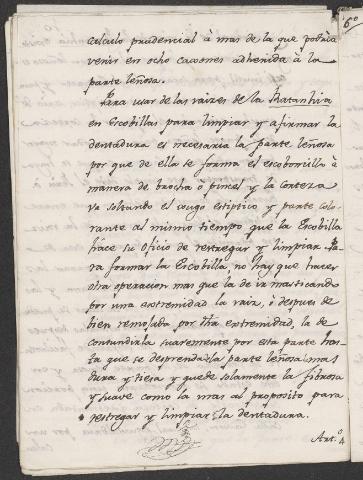 6º
calculo prudencial à mas de la que podria
venir en ocho caxones adherida à la
parte leñosa.
Para usar de las raizes de la Ratanhia
en Escobillas para limpiar y afirmar la
dentadura es necesaria la parte leñosa
por que de ella se forma el escobonsillo à
manera de brocha ò pinsel y la corteza
va soltando el xugo estiptico y parte colo-
rante al mismo tiempo que la Escobilla
hace su oficio de restregar y limpiar. Pa-
ra formar la Escobilla, no hay que hacer
otra operacion mas que la de ir masticando
por una extremidad la raiz, ò despues de
bien remojada por dha extremidad, la de
contundirla suavemente por esta parte has-
ta que se desprenda la parte leñosa mas
dura y tiesa y quede solamente la fibrosa
y suave como la mas al proposito para
restregar y limpiar la dentadura.
Art.º